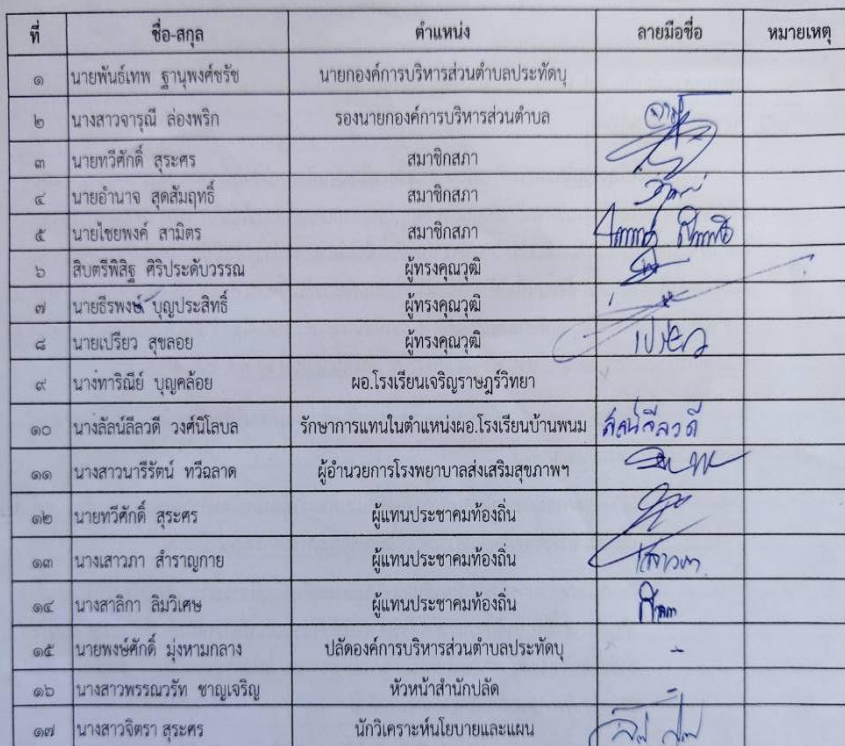 ที่ ชื่อ-สกุล ตำแหน่ง ลายมือชื่อ หมายเหตุ
๑ นายพันธ์เทพ ฐานุพงศ์ชรัช นายกองค์การบริหารส่วนตำบลประทัดบุ
๒ นางสาวจารุณี ล่องพริก รองนายกองค์การบริหารส่วนตำบล
๓ นายทวีศักดิ์ สุระศร สมาชิกสภา
๔ นายอำนาจ สุดสัมฤทธิ์ สมาชิกสภา
๕ นายไชยพงค์ สามิตร สมาชิกสภา
๖ สิบตรีพิสิฐ ศิริประดับวรรณ ผู้ทรงคุณวุฒิ
๗ นายธีรพงษ์ บุญประสิทธิ์ ผู้ทรงคุณวุฒิ
๘ นายเปรียว สุขลอย ผู้ทรงคุณวุฒิ เปรียว
๙ นางทาริณีย์ บุญคล้อย ผอ.โรงเรียนเจริญราษฎร์วิทยา
๑๐ นางลัลน์ลีลวดี วงศ์นิโลบล รักษาการแทนในตำแหน่งผอ.โรงเรียนบ้านพนม ลัลน์ลีลวดี
๑๑ นางสาวนารีรัตน์ ทวีฉลาด ผู้อำนวยการโรงพยาบาลส่งเสริมสุขภาพฯ
๑๒ นายทวีศักดิ์ สุระศร ผู้แทนประชาคมท้องถิ่น
๑๓ นางเสาวภา สำราญกาย ผู้แทนประชาคมท้องถิ่น เสาวภา
๑๔ นางสาลิกา ลิมวิเศษ ผู้แทนประชาคมท้องถิ่น
๑๕ นายพงษ์ศักดิ์ มุ่งหามกลาง ปลัดองค์การบริหารส่วนตำบลประทัดบุ -
๑๖ นางสาวพรรณวรัท ชาญเจริญ หัวหน้าสำนักปลัด
๑๗ นางสาวจิตรา สุระศร นักวิเคราะห์นโยบายและแผน